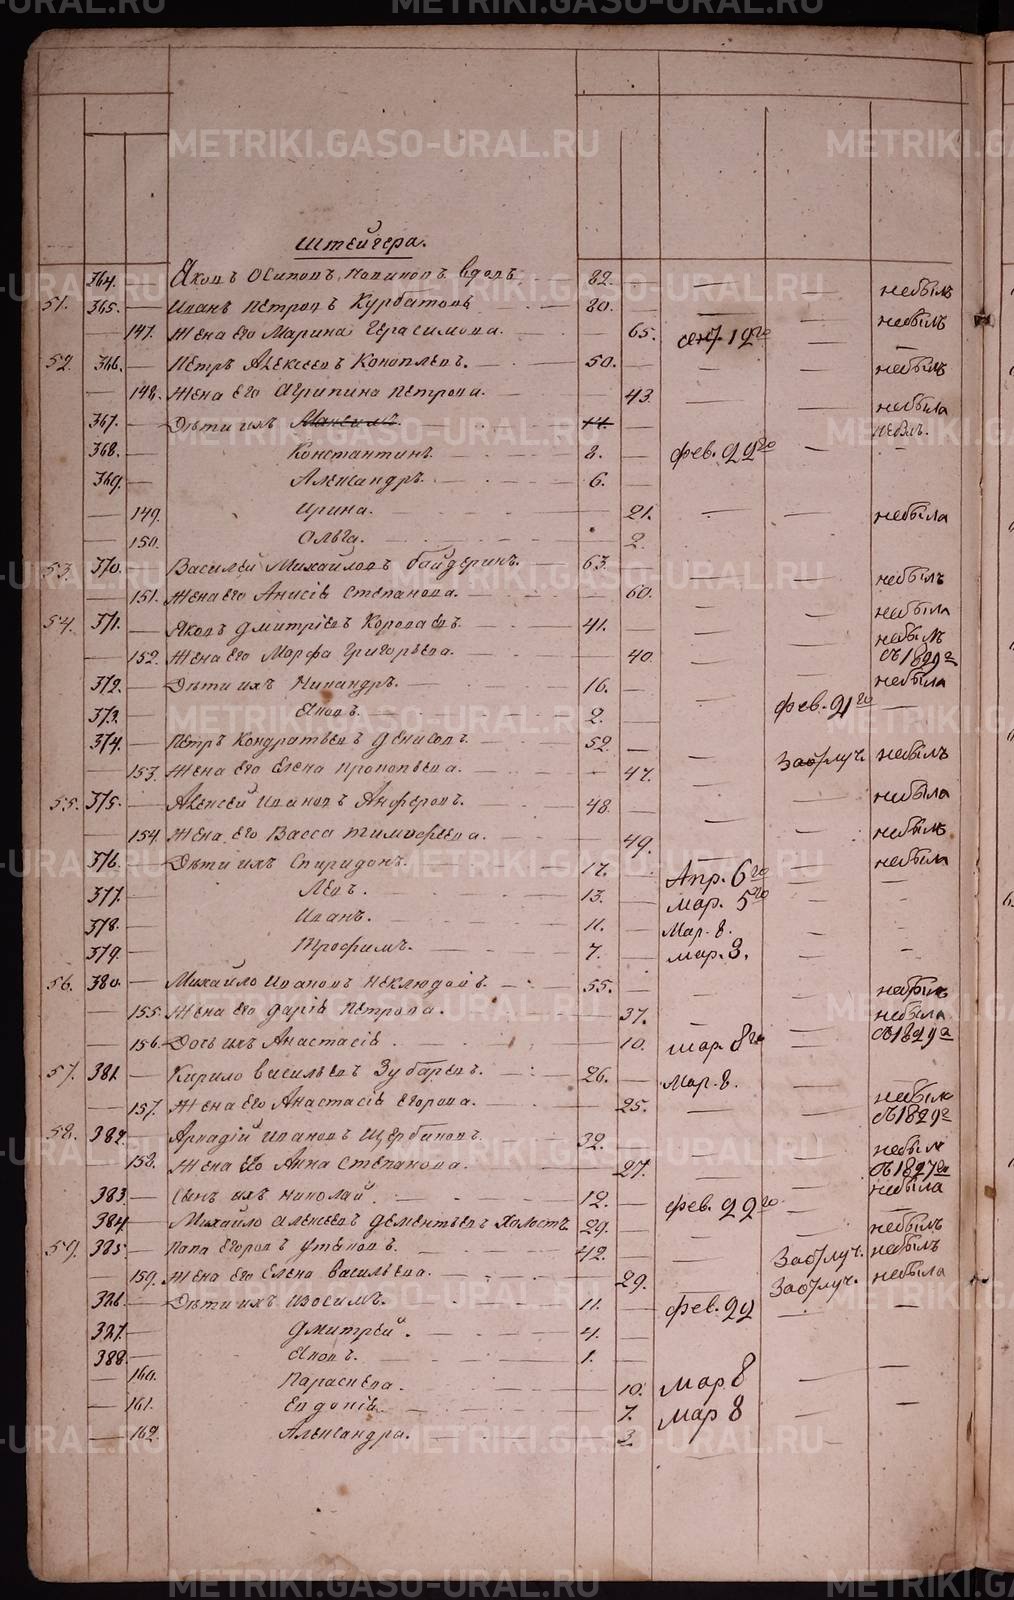 Штейгера.
364. Яковъ Осиповъ Новиковъ вдовъ 82. — — небылъ
51. 365. — Иванъ Петровъ Курбатовъ 80. — — — небылъ
147. Жена его Марина Герасимова. — 65. сен. 19го — —
52. 366. — Петръ Алексеевъ Коноплевъ. 50. — — — небылъ
— 148. Жена его Агрипина Петрова. — 43. — — небыла
367. — Дѣти ихъ Максимъ. 14. — небылъ.
368. — Константинъ 8. — фев. 22го — —
369. — Александръ. 6. —
— 149. Ирина. — 21. — — небыла
— 150. Ольга. 2.
53. 370. — Василей Михайловъ Байдеринъ. 63. — — — небылъ
— 151. Жена его Анисія Степанова. — 60. — — небыла
54. 371. — Яковъ Дмитріевъ Короваевъ. 41. — — — небылъ съ 1829го
— 152. Жена его Марфа Григорьева. — 40. — — небыла
372. — Дѣти ихъ Никандръ. 16. — — фев. 21го —
373. — Яковъ. 2. —
374. — Петръ Кондратьевъ Денисовъ. 52. — — За отлуч. небылъ
— 153. Жена его Елена Прокопьева. — 47. — — небыла
55. 375. — Алексей Ивановъ Анферовъ. 48. — — — небылъ
— 154. Жена его Васса Тимофеева. — 49. — — небыла
376. — Дѣти ихъ Спиридонъ. 17. — Апр. 6го — —
377. — Левъ. 13. — мар. 5го — —
378. — Иванъ. 11. — Мар. 8. — —
379. — Трофимъ. 7. — мар. 3. — —
56. 380. — Михайло Ивановъ Неклюдовъ. 55. — — — небылъ
— 155. Жена его Дарія Петрова. — 37. — — небыла съ 1829го
— 156. Дочь ихъ Анастасія. — 10. мар. 8го —
57. 381. — Кирило Васильевъ Зубаревъ. 26. — Мар. 8. —
— 157. Жена его Анастасія Егорова. — 25. — — небыла съ 1829го
58. 382. — Аркадій Ивановъ Щербаковъ. 32. — — — небылъ съ 1827го
— 158. Жена его Анна Степанова. — 27. — — небыла
383. — Сынъ ихъ Николай. 12. — фев. 22го — —
384. — Михайло Алексеевъ Дементьевъ холостъ 29. — — За отлуч. небылъ
59. 385. — Кала Егоровъ Утяковъ. 42. — — За отлуч. небылъ
— 159. Жена его Елена Васильева. — 29. — небыла
386. — Дѣти ихъ Изосимъ. 11. — фев. 22 — —
387. — Дмитрей. 4. —
388. — Яковъ. 1. —
— 160. Параскева. 10. мар 8 — —
— 161. Евдокія. 7. мар 8 — —
— 162. Александра. 3.
METRIKI.GASO-URAL.RU